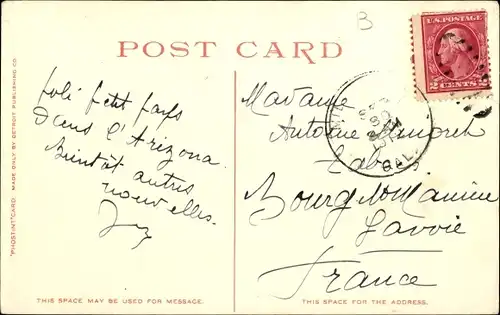 B
U.S. POSTAGE
2 CENTS 2
POST CARD
Joli petit pays
dans l'Arizona
Bientôt autres
nouvelles.
Madame
Antoine
CAL.
Bourg St Maurice
Savoie
France
"PHOSTINT" CARD. MADE ONLY BY DETROIT PUBLISHING CO.
THIS SPACE MAY BE USED FOR MESSAGE.
THIS SPACE IS FOR THE ADDRESS.